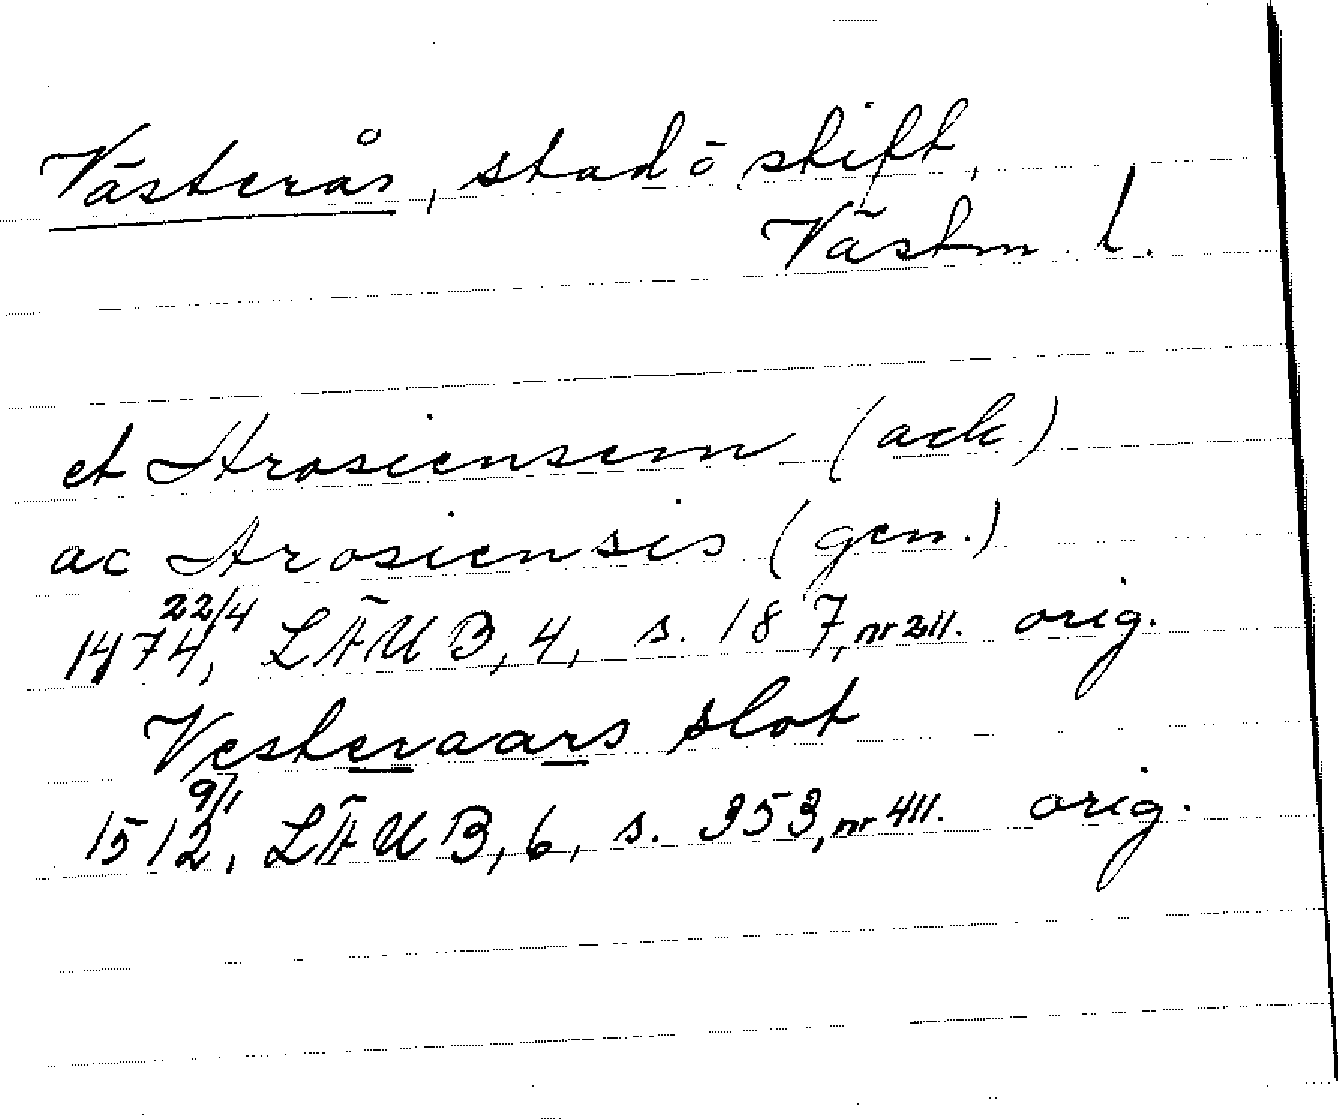 Västerås, stad o stift,
Västm. l.
et Arosiensem (ack)
ac Arosiensis (gen.)
22/4
1474, LÄUB, 4, s. 187, nr 211. orig.
Vesteraars slot
9/1
1512, LÄUB, 6, s. 353, nr 411. orig.